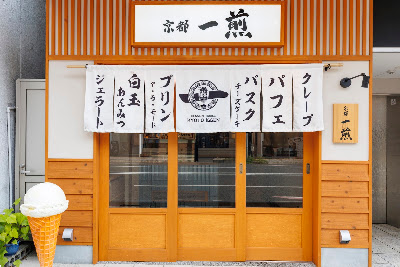 京都 一煎
クレープ
パフェ
バスク
チーズケーキ
KYOTO ISSEN
プリン
アラモード
白玉
あんみつ
ジェラート
京都
一煎